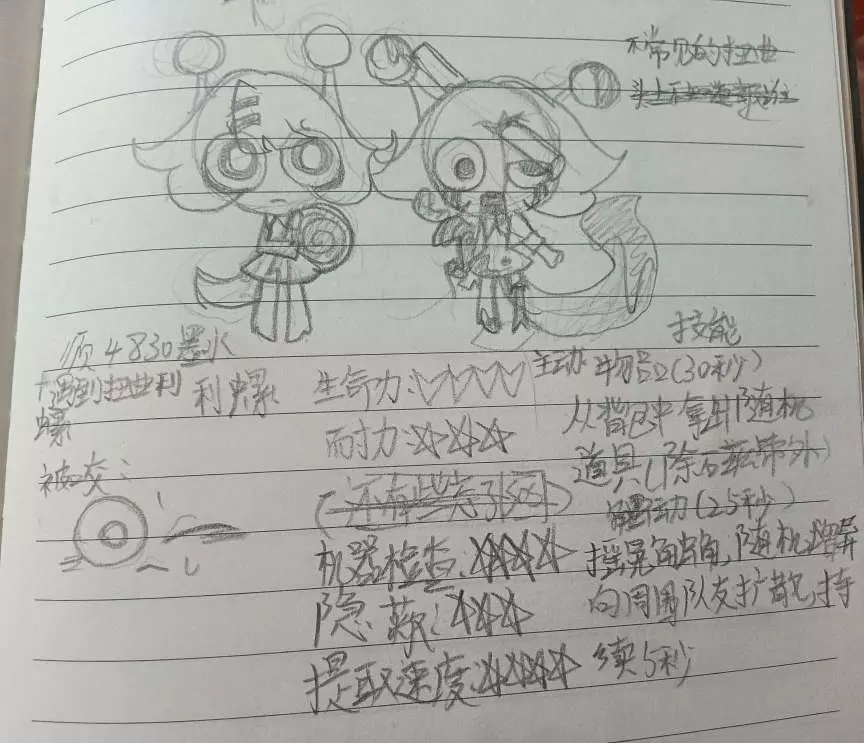 不常见的扭曲
须4830墨水
+遇到扭曲利
螺
利螺
被动:
生命力:
耐力:
机器检查:
隐蔽:
提取速度:
技能
主动:物品(30秒)
从背包中拿出随机
道具(除石鼓带外)
动(25秒)
摇晃触角,随机
向周围队友扩散,持
续5秒